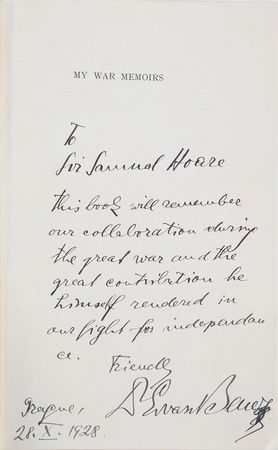 MY WAR MEMOIRS
To
Sir Samuel Hoare
this book will remember
our collaboration during
the great war and the
great contribution he
himself rendered in
our fight for independan
ce.
Friendly
Dr Edvard Beneš
Prague,
28. X. 1928.